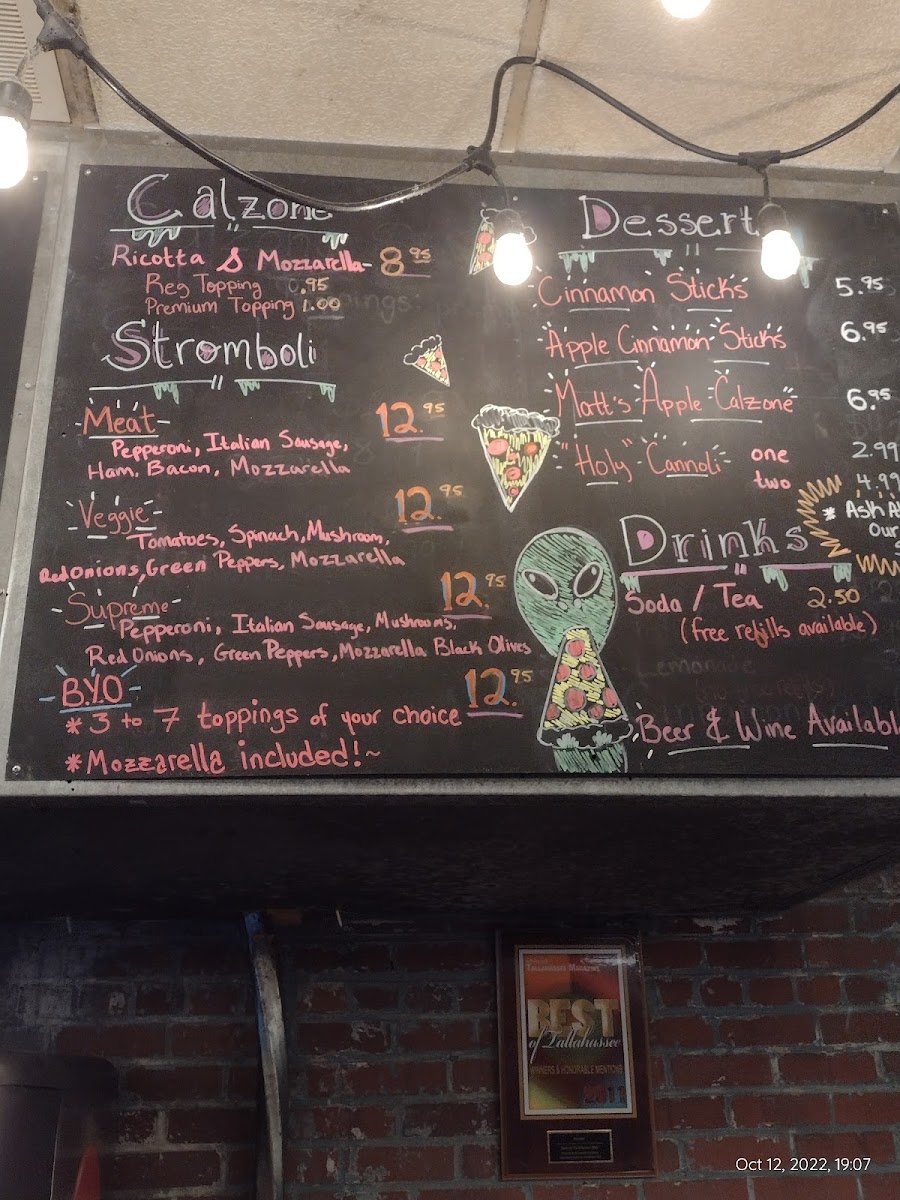 Calzone
Ricotta & Mozzarella 8.95
Reg Topping 0.95
Premium Topping 1.00
Stromboli
Meat 12.95
Pepperoni, Italian Sausage,
Ham, Bacon, Mozzarella
Veggie 12.95
Tomatoes, Spinach, Mushroom,
Red Onions, Green Peppers, Mozzarella
Supreme 12.95
Pepperoni, Italian Sausage, Mushrooms,
Red Onions, Green Peppers, Mozzarella Black Olives
B.Y.O 12.95
*3 to 7 toppings of your choice
*Mozzarella included!~
Dessert
Cinnamon Sticks 5.95
Apple Cinnamon Sticks 6.95
Matt's Apple Calzone 6.95
"Holy" Cannoli one 2.99
two 4.99
* Ask
Our
Drinks
Soda / Tea 2.50
(free refills available)
Lemonade
Beer & Wine Availabl
TALLAHASSEE MAGAZINE
BEST
of Tallahassee
WINNERS & HONORABLE MENTIONS
2011
Oct 12, 2022, 19:07